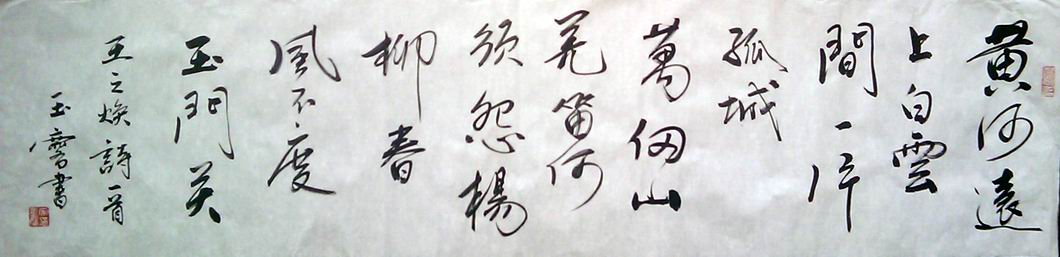 黄河遠
上白雲
間一片
孤城
萬仞山
羌笛何
須怨楊
柳春
風不度
玉門关
王之焕詩一首
玉齋書